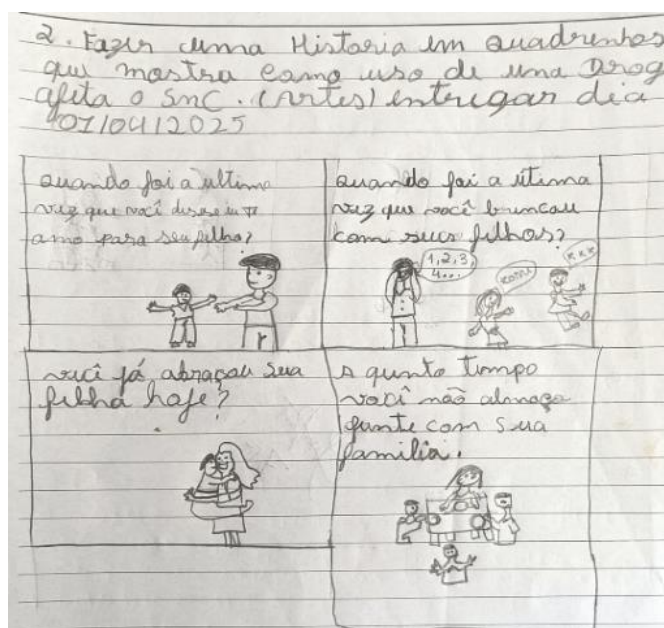 2. Fazer uma Historia em Quadrinhos
que mostra como uso de uma Drog
afeta o SNC. (Artes) entregar dia
07/04/2025
Quando foi a ultima
vez que você disse eu te
amo para seu filho?
Quando foi a útima
vez que você brincou
com seus filhos?
1, 2, 3,
4...
KKK
você já abraçou sua
filha hoje?
A qunto tempo
você não almoça
junte com sua
familia.